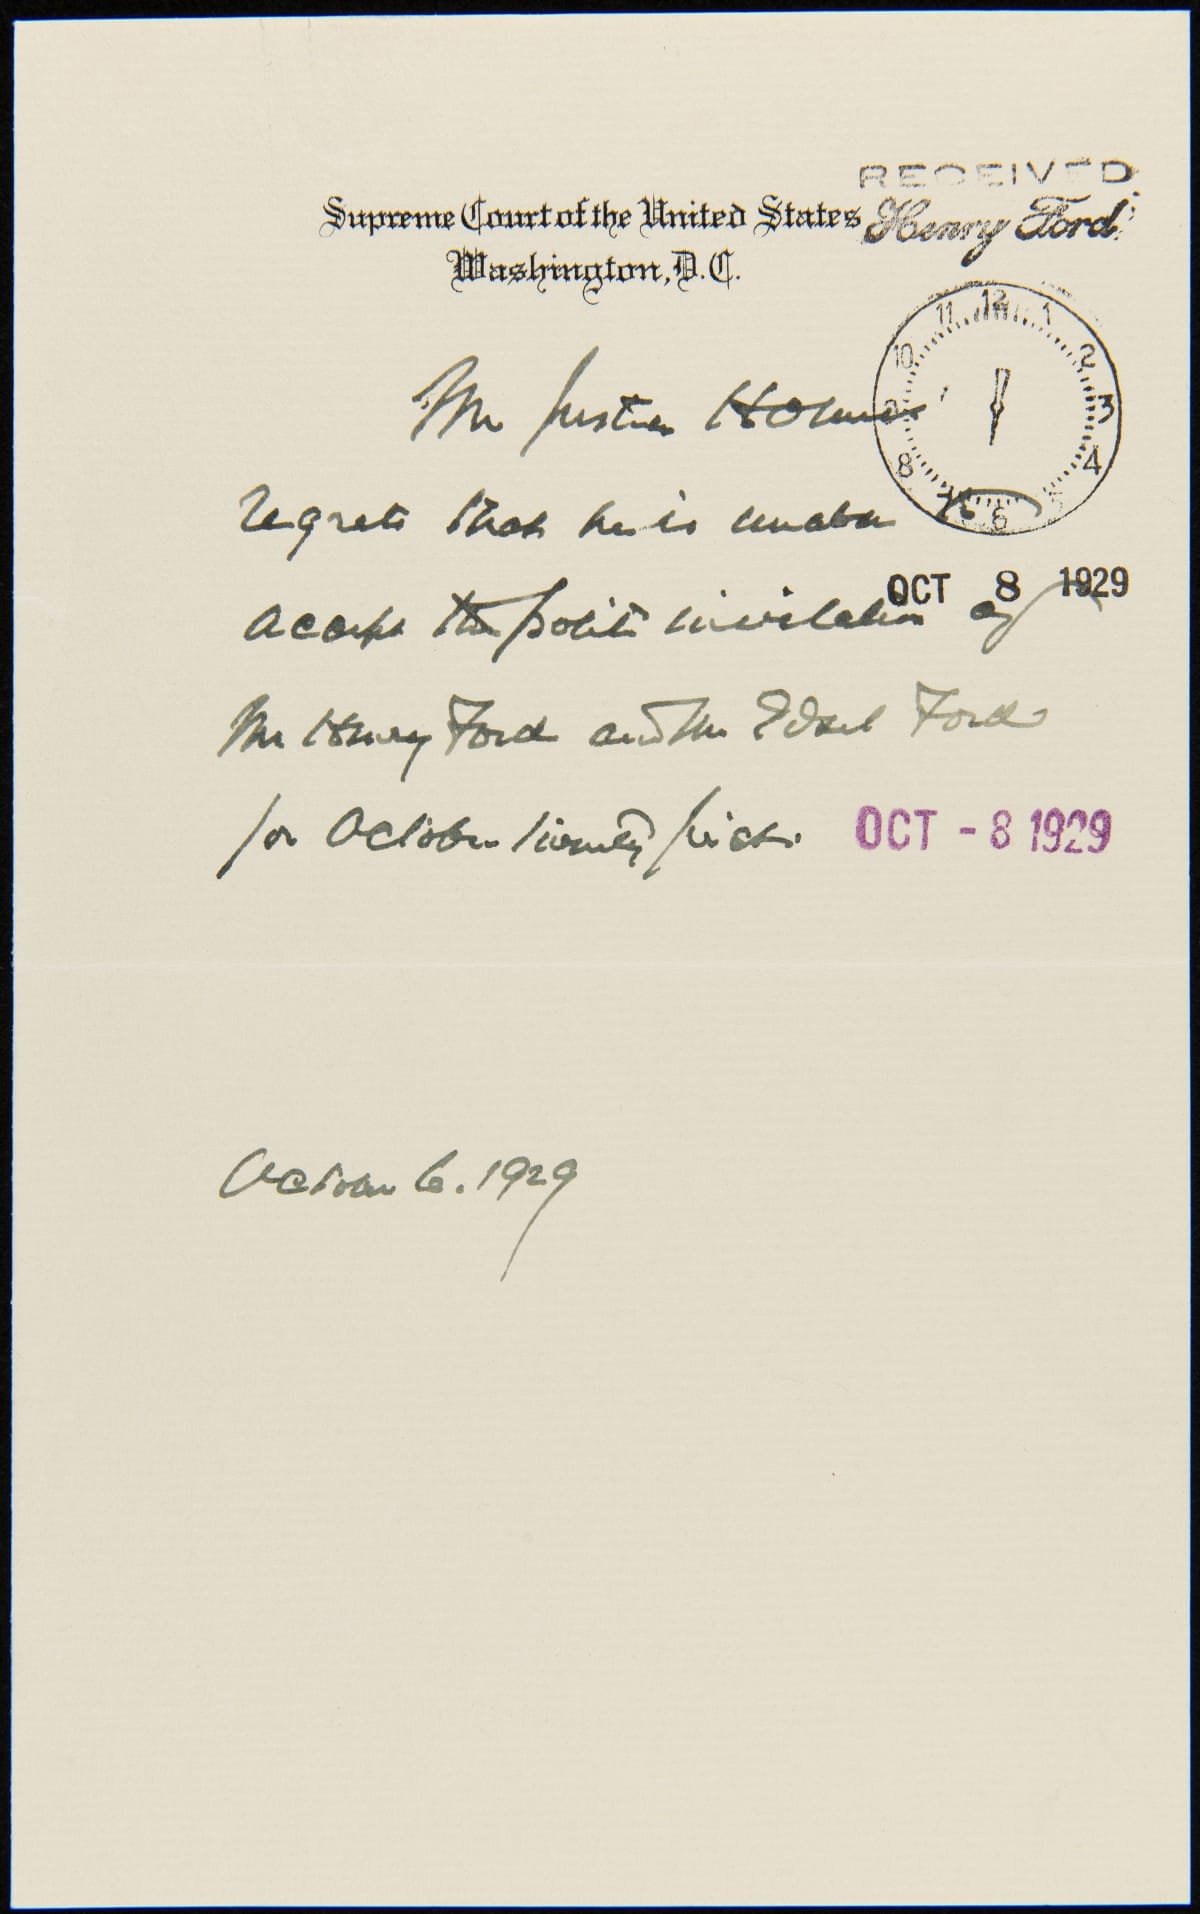 RECEIVED
Supreme Court of the United States
Henry Ford
Washington, D.C.
12
11 1
10 2
Mr Justice Holmes
9 3
8 4
regrets that he is unable to
6 5
OCT 8 1929
accept the polite invitation of
Mr Henry Ford and Mr Edsel Ford
for October twenty first.
OCT - 8 1929
October 6. 1929